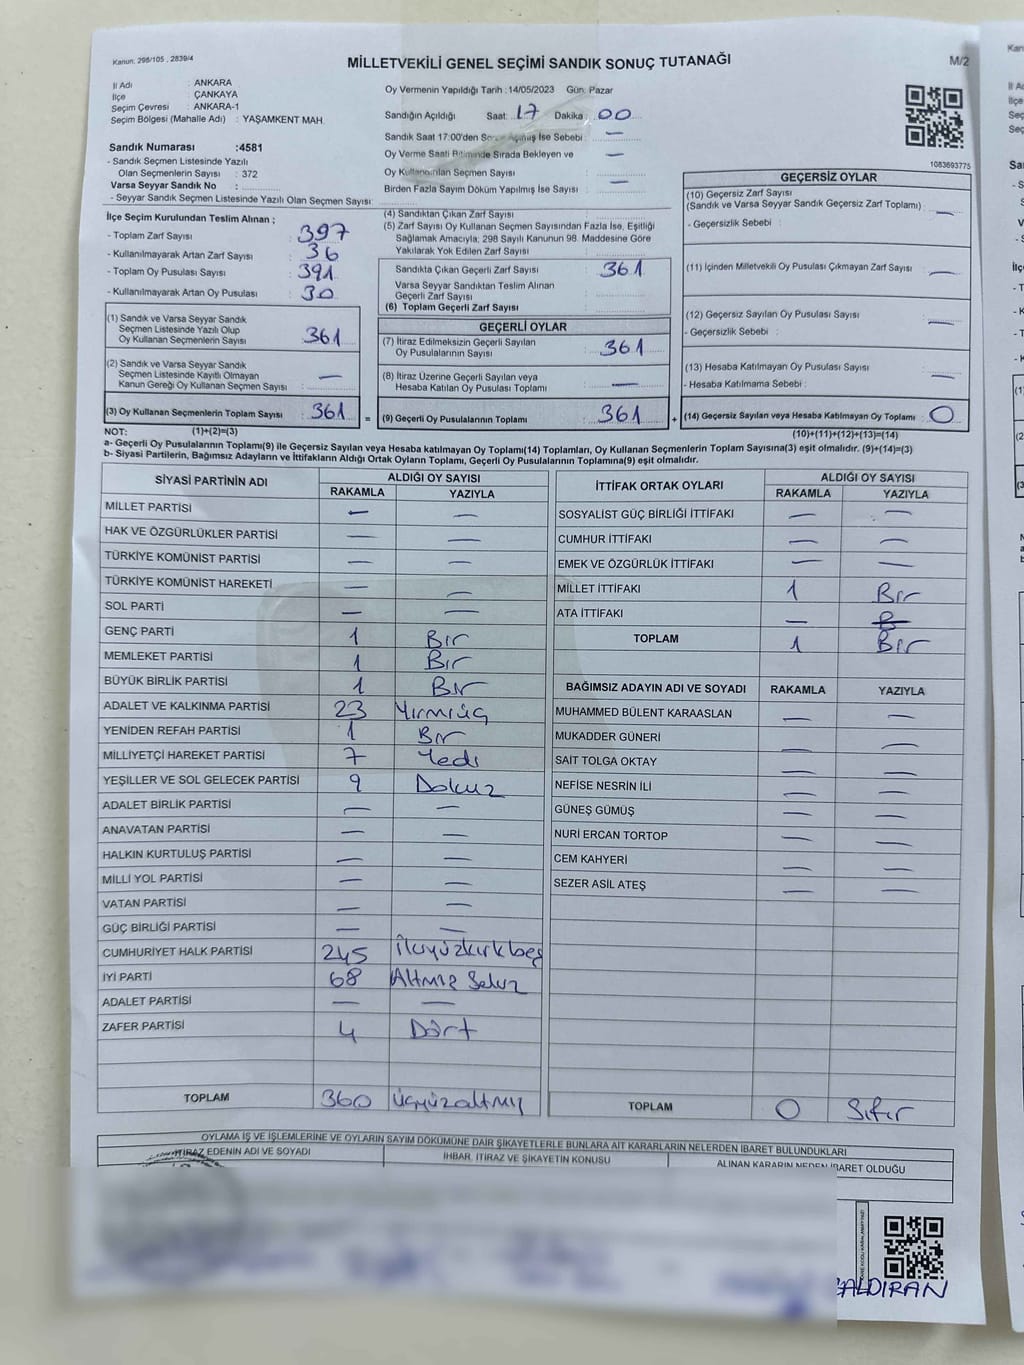 Kanun. 298/105 , 2839/4
MİLLETVEKİLİ GENEL SEÇİMİ SANDIK SONUÇ TUTANAĞI
M/2
İl Adı : ANKARA
İlçe : ÇANKAYA
Seçim Çevresi : ANKARA-1
Seçim Bölgesi (Mahalle Adı) : YAŞAMKENT MAH.
Sandık Numarası :4581
- Sandık Seçmen Listesinde Yazılı
Olan Seçmenlerin Sayısı : 372
Varsa Seyyar Sandık No :
- Seyyar Sandık Seçmen Listesinde Yazılı Olan Seçmen Sayısı:
Oy Vermenin Yapıldığı Tarih :14/05/2023 Gün: Pazar
Sandığın Açıldığı Saat: 17 Dakika 00
Sandık Saat 17:00'den Açılmış İse Sebebi : —
Oy Verme Saati Bitiminde Sırada Bekleyen ve
Oy Kullandırılan Seçmen Sayısı : —
Birden Fazla Sayım Döküm Yapılmış İse Sayısı : —
1083693775
İlçe Seçim Kurulundan Teslim Alınan ;
- Toplam Zarf Sayısı : 397
- Kullanılmayarak Artan Zarf Sayısı : 36
- Toplam Oy Pusulası Sayısı : 391
- Kullanılmayarak Artan Oy Pusulası : 30
(1) Sandık ve Varsa Seyyar Sandık
Seçmen Listesinde Yazılı Olup
Oy Kullanan Seçmenlerin Sayısı : 361
(2) Sandık ve Varsa Seyyar Sandık
Seçmen Listesinde Kayıtlı Olmayan
Kanun Gereği Oy Kullanan Seçmen Sayısı : —
(3) Oy Kullanan Seçmenlerin Toplam Sayısı : 361
(4) Sandıktan Çıkan Zarf Sayısı :
(5) Zarf Sayısı Oy Kullanan Seçmen Sayısından Fazla İse, Eşitliği
Sağlamak Amacıyla, 298 Sayılı Kanunun 98. Maddesine Göre
Yakılarak Yok Edilen Zarf Sayısı :
Sandıkta Çıkan Geçerli Zarf Sayısı : 361
Varsa Seyyar Sandıktan Teslim Alınan
Geçerli Zarf Sayısı :
(6) Toplam Geçerli Zarf Sayısı :
GEÇERLİ OYLAR
(7) İtiraz Edilmeksizin Geçerli Sayılan
Oy Pusulalarının Sayısı : 361
(8) İtiraz Üzerine Geçerli Sayılan veya
Hesaba Katılan Oy Pusulası Toplamı : —
= (9) Geçerli Oy Pusulalarının Toplamı : 361 +
GEÇERSİZ OYLAR
(10) Geçersiz Zarf Sayısı
(Sandık ve Varsa Seyyar Sandık Geçersiz Zarf Toplamı) : —
- Geçersizlik Sebebi :
(11) İçinden Milletvekili Oy Pusulası Çıkmayan Zarf Sayısı : —
(12) Geçersiz Sayılan Oy Pusulası Sayısı : —
- Geçersizlik Sebebi :
(13) Hesaba Katılmayan Oy Pusulası Sayısı : —
- Hesaba Katılmama Sebebi :
(14) Geçersiz Sayılan veya Hesaba Katılmayan Oy Toplamı : 0
NOT: (1)+(2)=(3) (10)+(11)+(12)+(13)=(14)
a- Geçerli Oy Pusulalarının Toplamı(9) ile Geçersiz Sayılan veya Hesaba katılmayan Oy Toplamı(14) Toplamları, Oy Kullanan Seçmenlerin Toplam Sayısına(3) eşit olmalıdır. (9)+(14)=(3)
b- Siyasi Partilerin, Bağımsız Adayların ve İttifakların Aldığı Ortak Oyların Toplamı, Geçerli Oy Pusulalarının Toplamına(9) eşit olmalıdır.
SİYASİ PARTİNİN ADI ALDIĞI OY SAYISI
RAKAMLA YAZIYLA
MİLLET PARTİSİ — —
HAK VE ÖZGÜRLÜKLER PARTİSİ — —
TÜRKİYE KOMÜNİST PARTİSİ — —
TÜRKİYE KOMÜNİST HAREKETİ — —
SOL PARTİ — —
GENÇ PARTİ 1 Bir
MEMLEKET PARTİSİ 1 Bir
BÜYÜK BİRLİK PARTİSİ 1 Bir
ADALET VE KALKINMA PARTİSİ 23 Yirmiüç
YENİDEN REFAH PARTİSİ 1 Bir
MİLLİYETÇİ HAREKET PARTİSİ 7 Yedi
YEŞİLLER VE SOL GELECEK PARTİSİ 9 Dokuz
ADALET BİRLİK PARTİSİ — —
ANAVATAN PARTİSİ — —
HALKIN KURTULUŞ PARTİSİ — —
MİLLİ YOL PARTİSİ — —
VATAN PARTİSİ — —
GÜÇ BİRLİĞİ PARTİSİ — —
CUMHURİYET HALK PARTİSİ 245 İkiyüzkırkbeş
İYİ PARTİ 68 Altmış Sekiz
ADALET PARTİSİ — —
ZAFER PARTİSİ 4 Dört
TOPLAM 360 Üçyüzaltmış
İTTİFAK ORTAK OYLARI ALDIĞI OY SAYISI
RAKAMLA YAZIYLA
SOSYALİST GÜÇ BİRLİĞİ İTTİFAKI — —
CUMHUR İTTİFAKI — —
EMEK VE ÖZGÜRLÜK İTTİFAKI — —
MİLLET İTTİFAKI 1 Bir
ATA İTTİFAKI —
TOPLAM 1 Bir
BAĞIMSIZ ADAYIN ADI VE SOYADI RAKAMLA YAZIYLA
MUHAMMED BÜLENT KARAASLAN — —
MUKADDER GÜNERİ — —
SAİT TOLGA OKTAY — —
NEFİSE NESRİN İLİ — —
GÜNEŞ GÜMÜŞ — —
NURİ ERCAN TORTOP — —
CEM KAHYERİ — —
SEZER ASİL ATEŞ — —
TOPLAM 0 Sıfır
OYLAMA İŞ VE İŞLEMLERİNE VE OYLARIN SAYIM DÖKÜMÜNE DAİR ŞİKAYETLERLE BUNLARA AİT KARARLARIN NELERDEN İBARET BULUNDUKLARI
İTİRAZ EDENİN ADI VE SOYADI İHBAR, İTİRAZ VE ŞİKAYETİN KONUSU ALINAN KARARIN NEDEN İBARET OLDUĞU
ÇALDIRAN